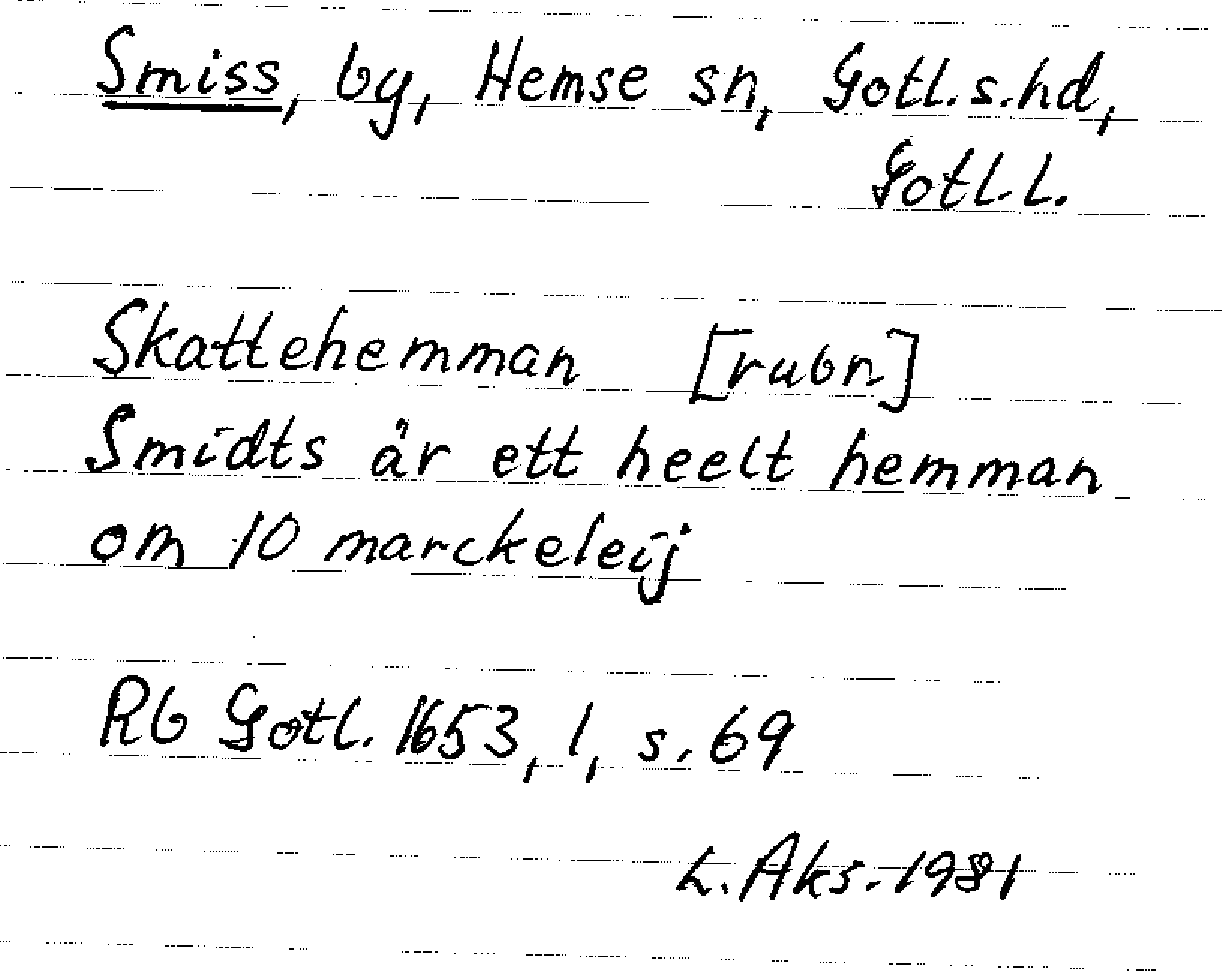 Smiss, by, Hemse sn, Gotl. s. hd,
Gotl. l.
Skattehemman [rubr]
Smidts år ett heelt hemman
om 10 marckeleij
Rb Gotl. 1653, 1, s. 69
L. Aks. 1981